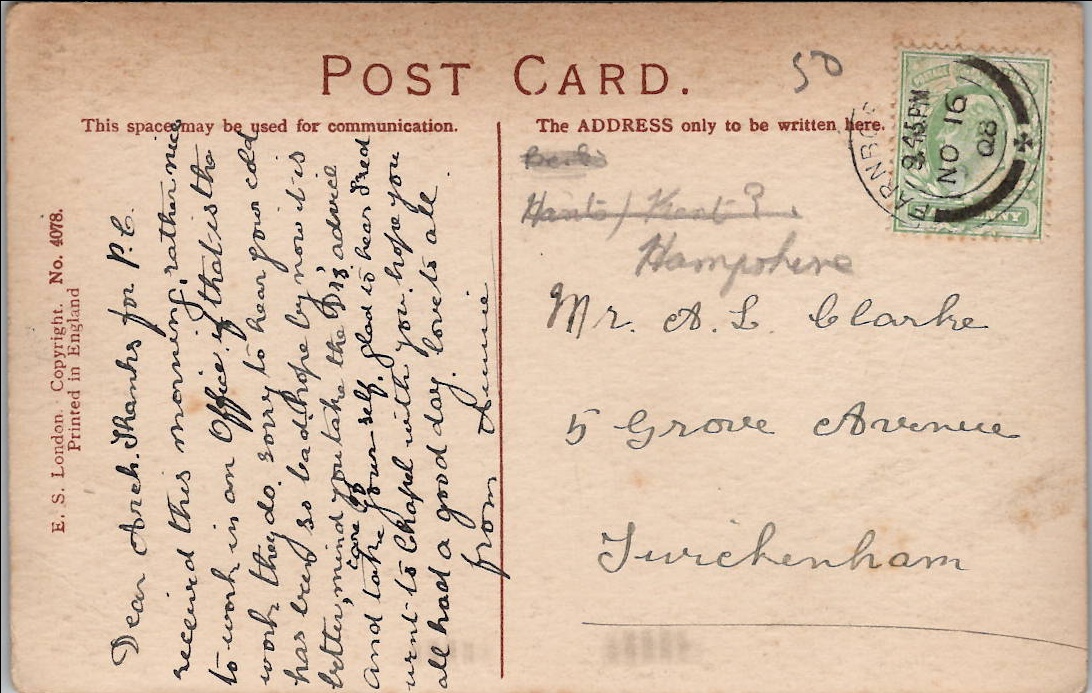 POST CARD.
50
This space may be used for communication.
The ADDRESS only to be written here.
E. S. London. Copyright. No. 4078.
Printed in England
Dear Arch. Thanks for P.C.
received this morning, rather nice
to work in an Office if that is the
work they do. sorry to hear your cold
has been so bad. hope by now it is
better, mind you take the Drs' advice
and take care of your self. glad to hear Fred
went to Chapel with you. hope you
all had a good day. love to all
from Annie
Hants / Kent ?
Hampshire
Mr. A. L. Clarke
5 Grove Avenue
Twickenham
FARNBO
9.45PM
NO 16
08
NNY